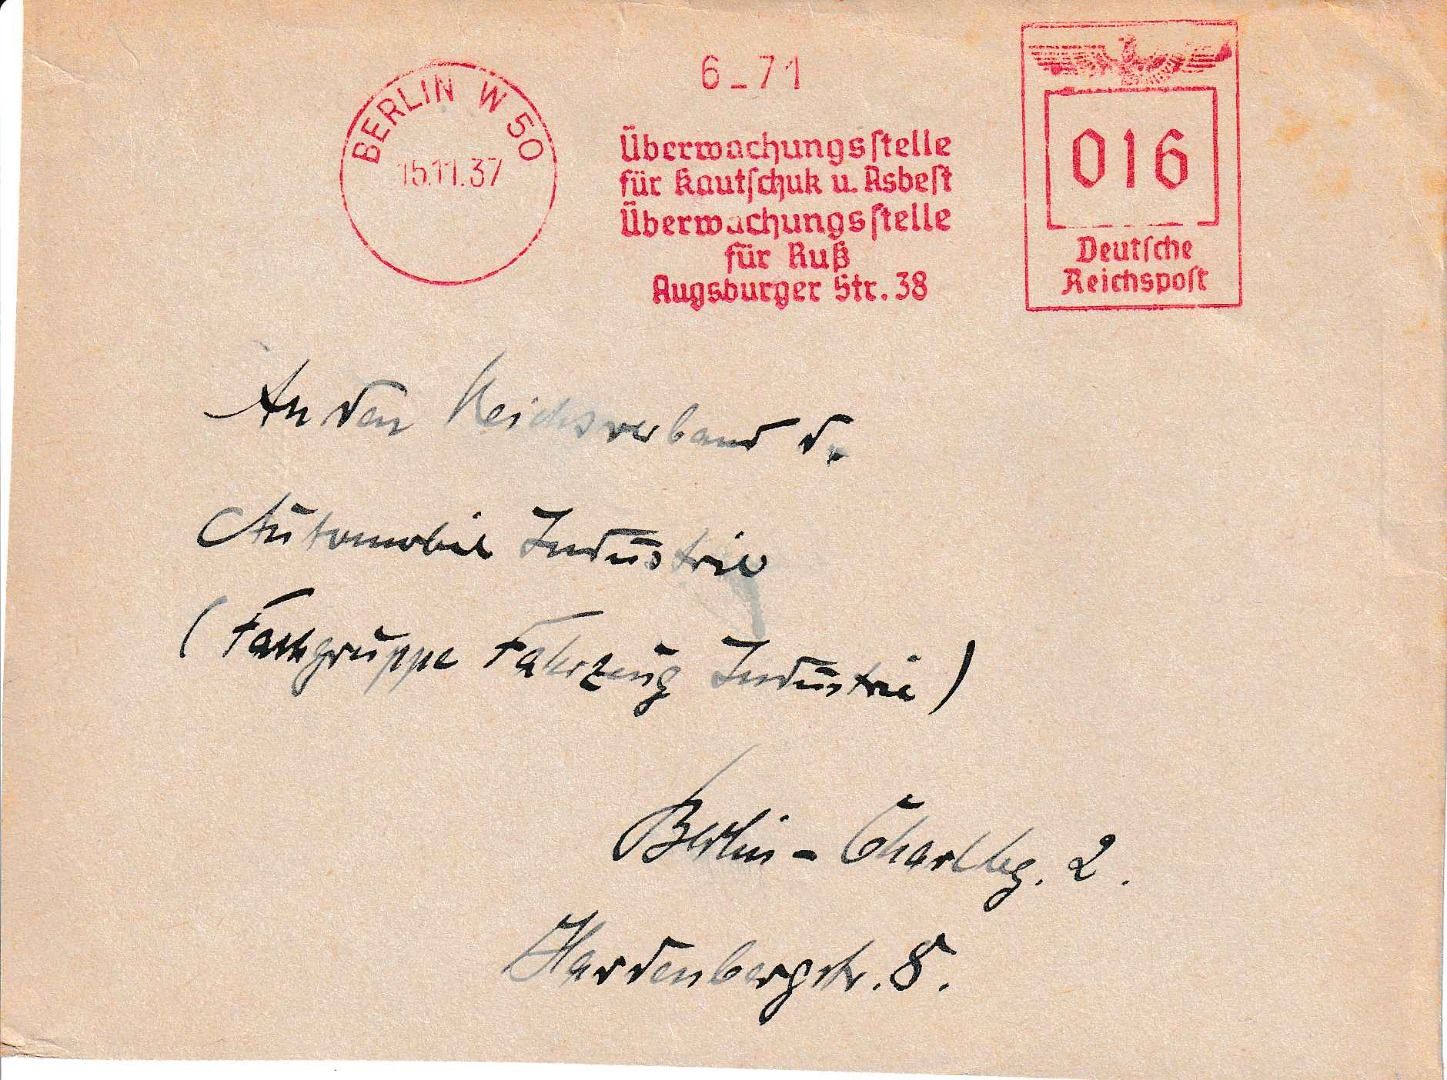 BERLIN W 50
15.11.37
6_71
Überwachungsstelle
für Kautschuk u. Asbest
Überwachungsstelle
für Ruß
Augsburger Str. 38
016
Deutsche
Reichspost
An den Reichsverband d.
Automobil Industrie
(Fachgruppe Fahrzeug Industrie)
Berlin - Charlbg. 2.
Hardenbergstr. 8.